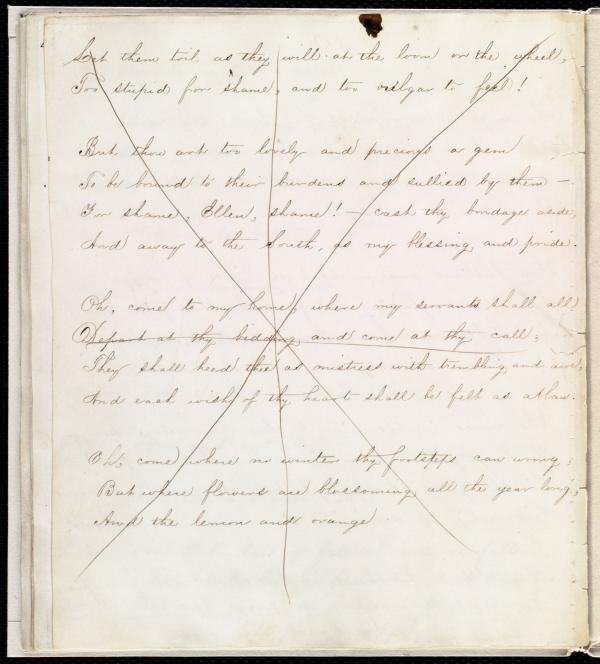 Let them toil, as they will at the loom or the wheel,
Too stupid for shame, and too vulgar to feel!
But thou art too lovely and precious a gem
To be bound to their burdens and sullied by them —
For shame, Ellen, shame! — cast thy bondage aside,
And away to the South, as my blessing and pride.
Oh, come to my home, where my servants shall all
Depart at thy bidding and come at thy call;
They shall heed thee as mistress with trembling and awe,
And each wish of thy heart shall be felt as a law.
Oh, come where no winter thy footsteps can wrong;
But where flowers are blossoming all the year long,
And the lemon and orange